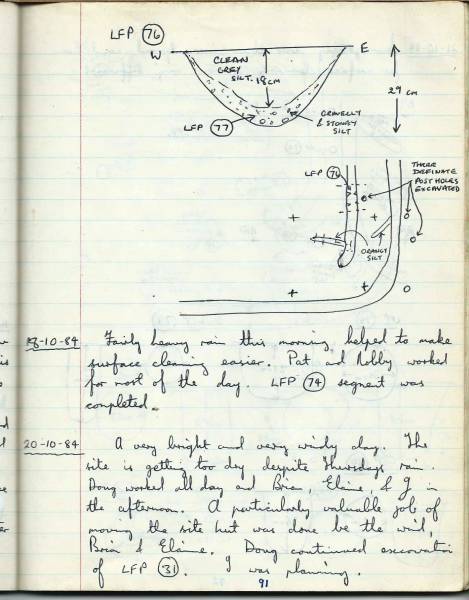 LFP 76
W
E
CLEAN
GREY
SILT. 18 CM
29 CM
LFP 77
GRAVELLY
& STONEY
SILT
LFP 76
THREE
DEFINATE
POST HOLES
EXCAVATED
ORANGY
SILT
18-10-84 Fairly heavy rain this morning helped to make
surface cleaning easier. Pat and Robby worked
for most of the day. LFP 74 segment was
completed.
20-10-84 A very bright and very windy day. The
site is getting too dry despite Thursdays rain.
Doug worked all day and Brian, Elaine, & I in
the afternoon. A particularly valuable job of
moving the site hut was done be the wind,
Brian & Elaine. Doug continued excavation
of LFP 31. I was planning.
91